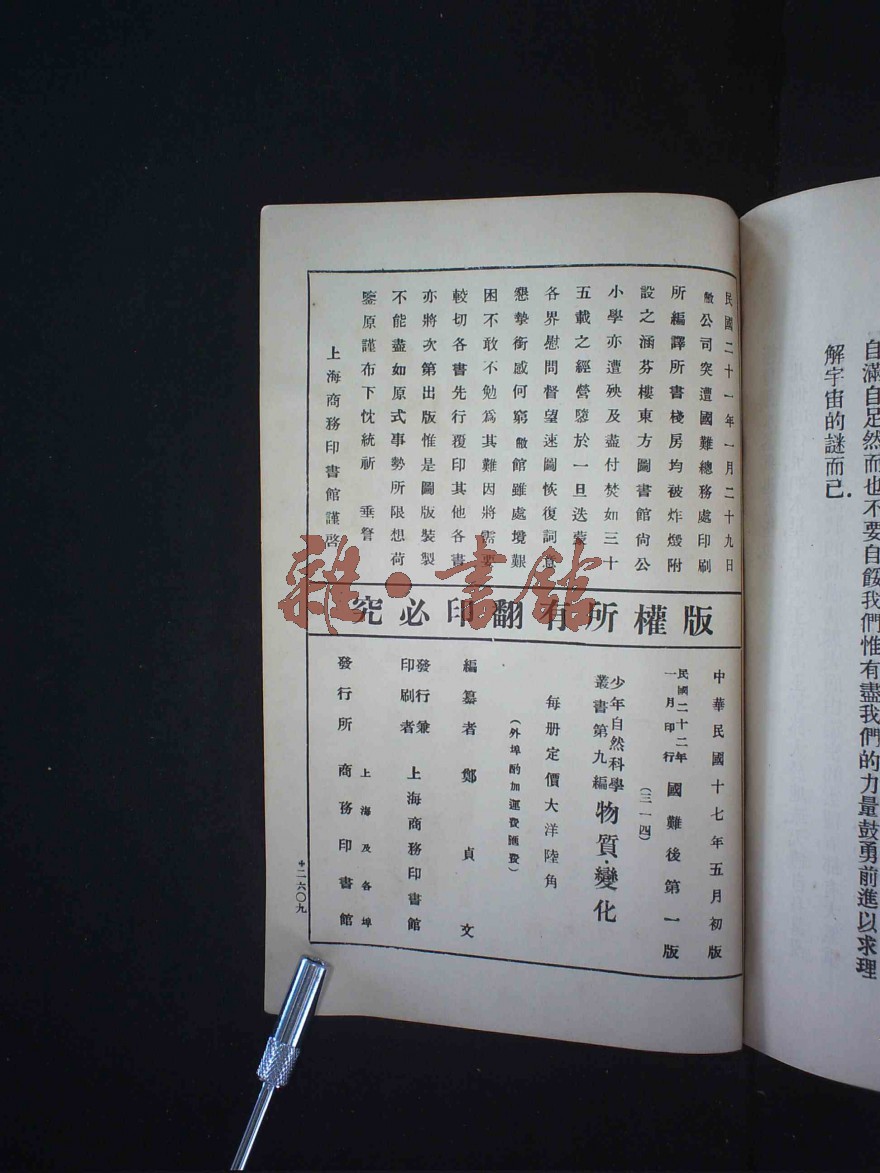 自滿自足然而也不要自餒我們惟有盡我們的力量鼓勇前進以求理
解宇宙的謎而已.
民國二十一年一月二十九日
敝公司突遭國難總務處印刷
所編譯所書棧房均被炸燬附
設之涵芬樓東方圖書館尙公
小學亦遭殃及盡付焚如三十
五載之經營隳於一旦迭蒙
各界慰問督望速圖恢復詞意
懇摯銜感何窮敝館雖處境艱
困不敢不勉爲其難因將需要
較切各書先行覆印其他各書
亦將次第出版惟是圖版裝製
不能盡如原式事勢所限想荷
鑒原謹布下忱統祈 垂詧
上海商務印書館謹啓
版權所有翻印必究
中華民國十七年五月初版
民國二十二年一月印行 國難後第一版
(三一四)
少年自然科學叢書第九編 物質·變化
每册定價大洋陸角
(外埠酌加運費匯費)
編纂者 鄭貞文
發行兼印刷者 上海商務印書館
發行所 上海及各埠 商務印書館
＊二六〇九
雜·書館